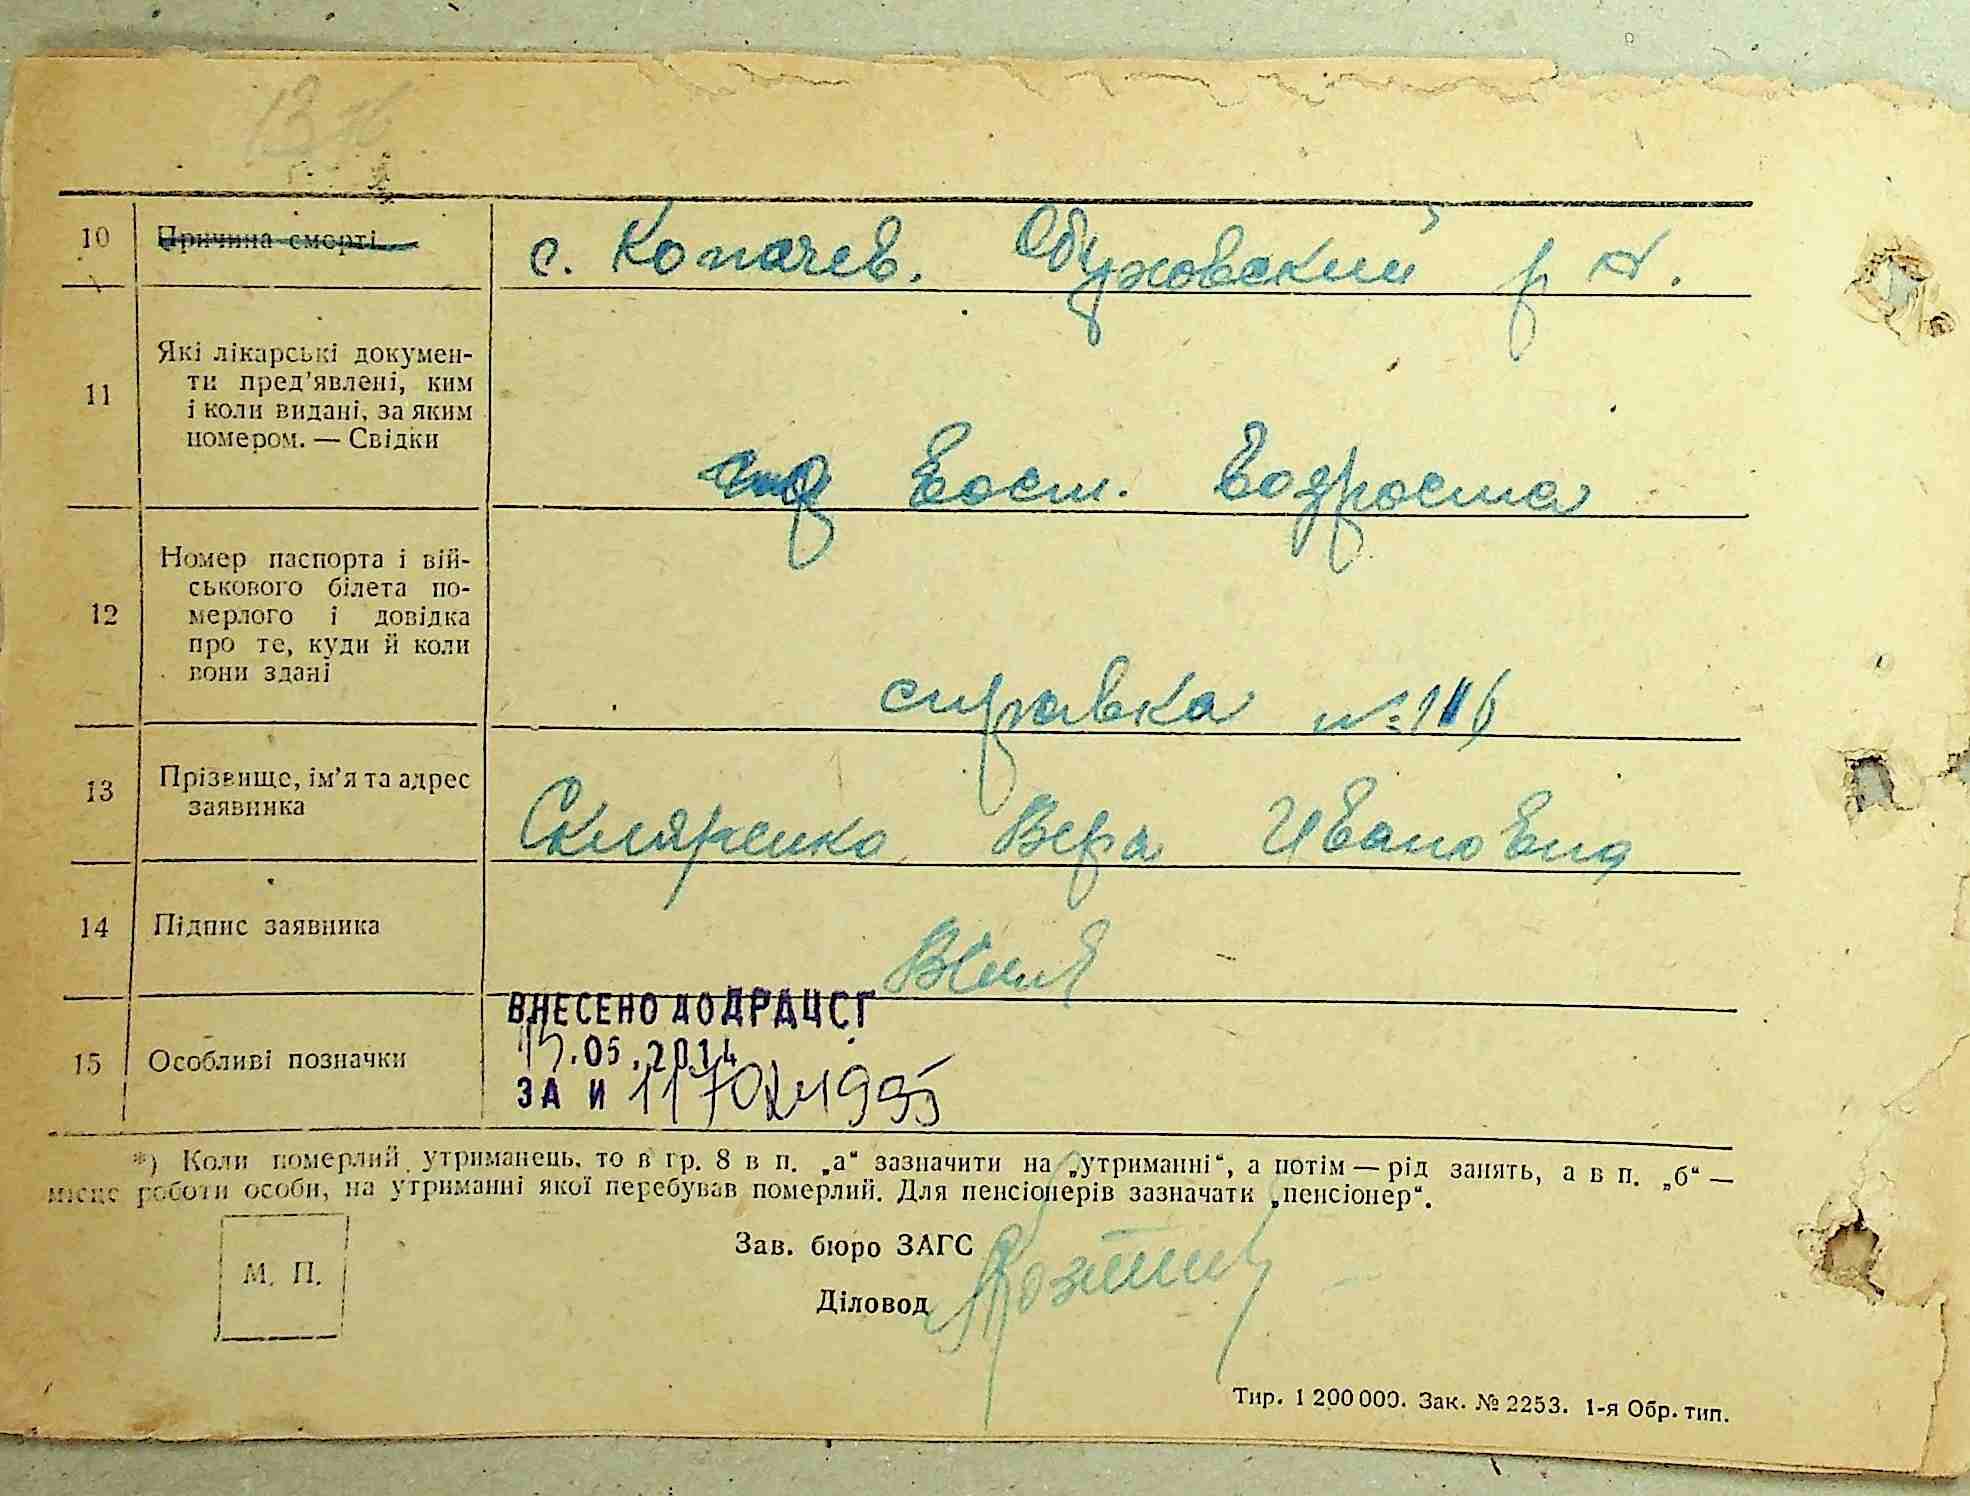 10 Причина смерті с. Копачев. Обуховский р н.
11 Які лікарські докумен-
ти пред'явлені, ким
і коли видані, за яким
номером. — Свідки
Восст. Возроста
12 Номер паспорта і вій-
ськового білета по-
мерлого і довідка
про те, куди й коли
вони здані
справка № 116
13 Прізвище, ім'я та адрес
заявника
Скляренко Вера Ивановна
14 Підпис заявника
ВНЕСЕНО ДО ДРАЦСГ
15.05.2014
15 Особливі позначки
ЗА И
*) Коли померлий утриманець, то в гр. 8 в п. „а“ зазначити на „утриманні“, а потім — рід занять, а в п. „б“ —
місце роботи особи, на утриманні якої перебував померлий. Для пенсіонерів зазначати „пенсіонер“.
Зав. бюро ЗАГС
М. П.
Діловод
Тир. 1 200 000. Зак. № 2253. 1-я Обр. тип.